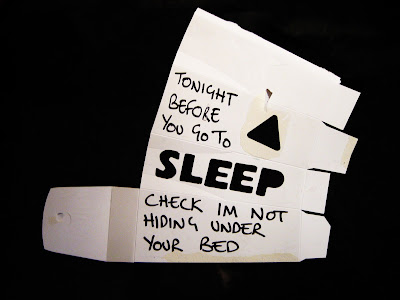 TONIGHT
BEFORE
YOU GO TO
SLEEP
CHECK IM NOT
HIDING UNDER
YOUR BED